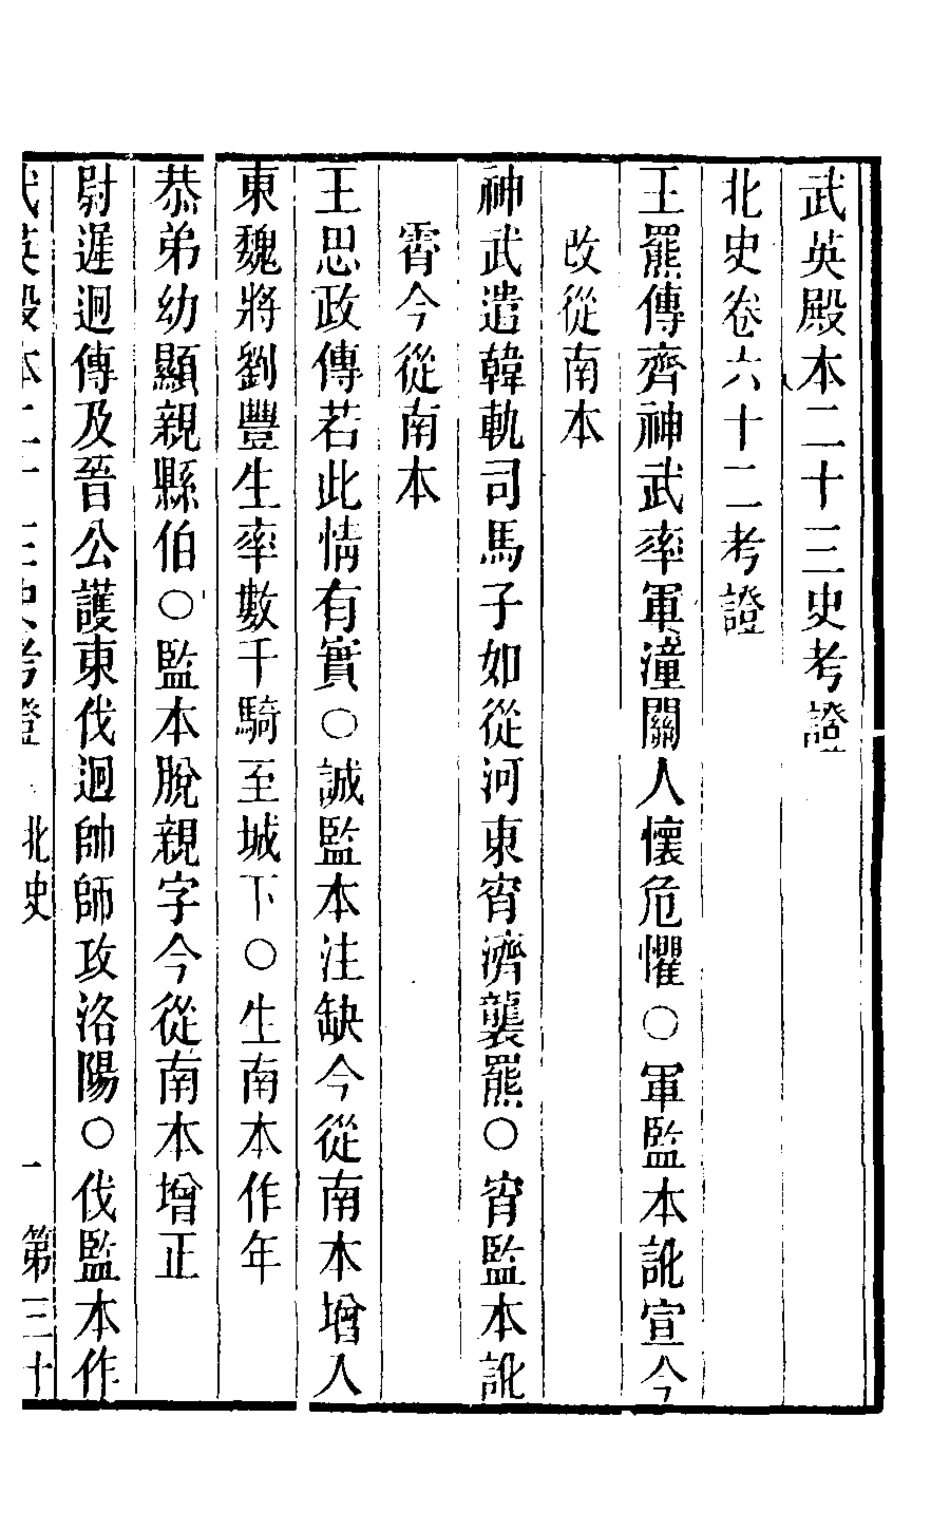 武英殿本二十三史考證
北史卷六十二考證
王羆傳齊神武率軍潼關人懷危懼○軍監本訛宣今
改從南本
神武遣韓軌司馬子如從河東宵濟襲羆○宵監本訛
霄今從南本
王思政傳若此情有實○誠監本注缺今從南本增入
東魏將劉豐生率數千騎至城下○生南本作年
恭弟幼顯親縣伯○監本脫親字今從南本增正
尉遲迥傳及晉公護東伐迥帥師攻洛陽○伐監本作
武英殿本二十三史考證 北史 一 第三十